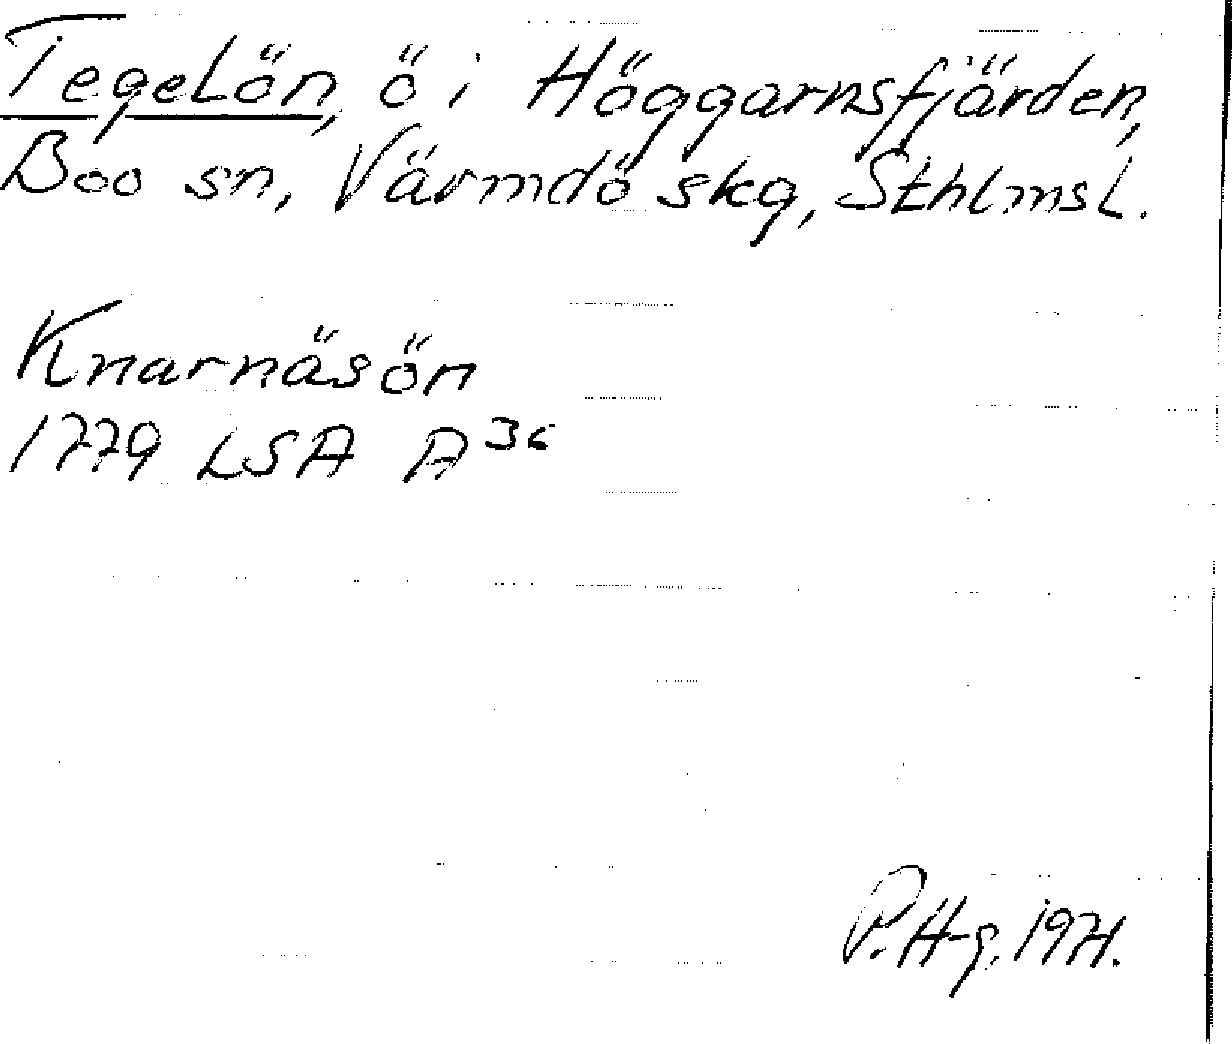 Tegelön, ö i Höggarnsfjärden,
Boo sn, Värmdö skg, Sthlmsl.
Knarnäsön
1779 LSA A 36
P. H-g. 1971.